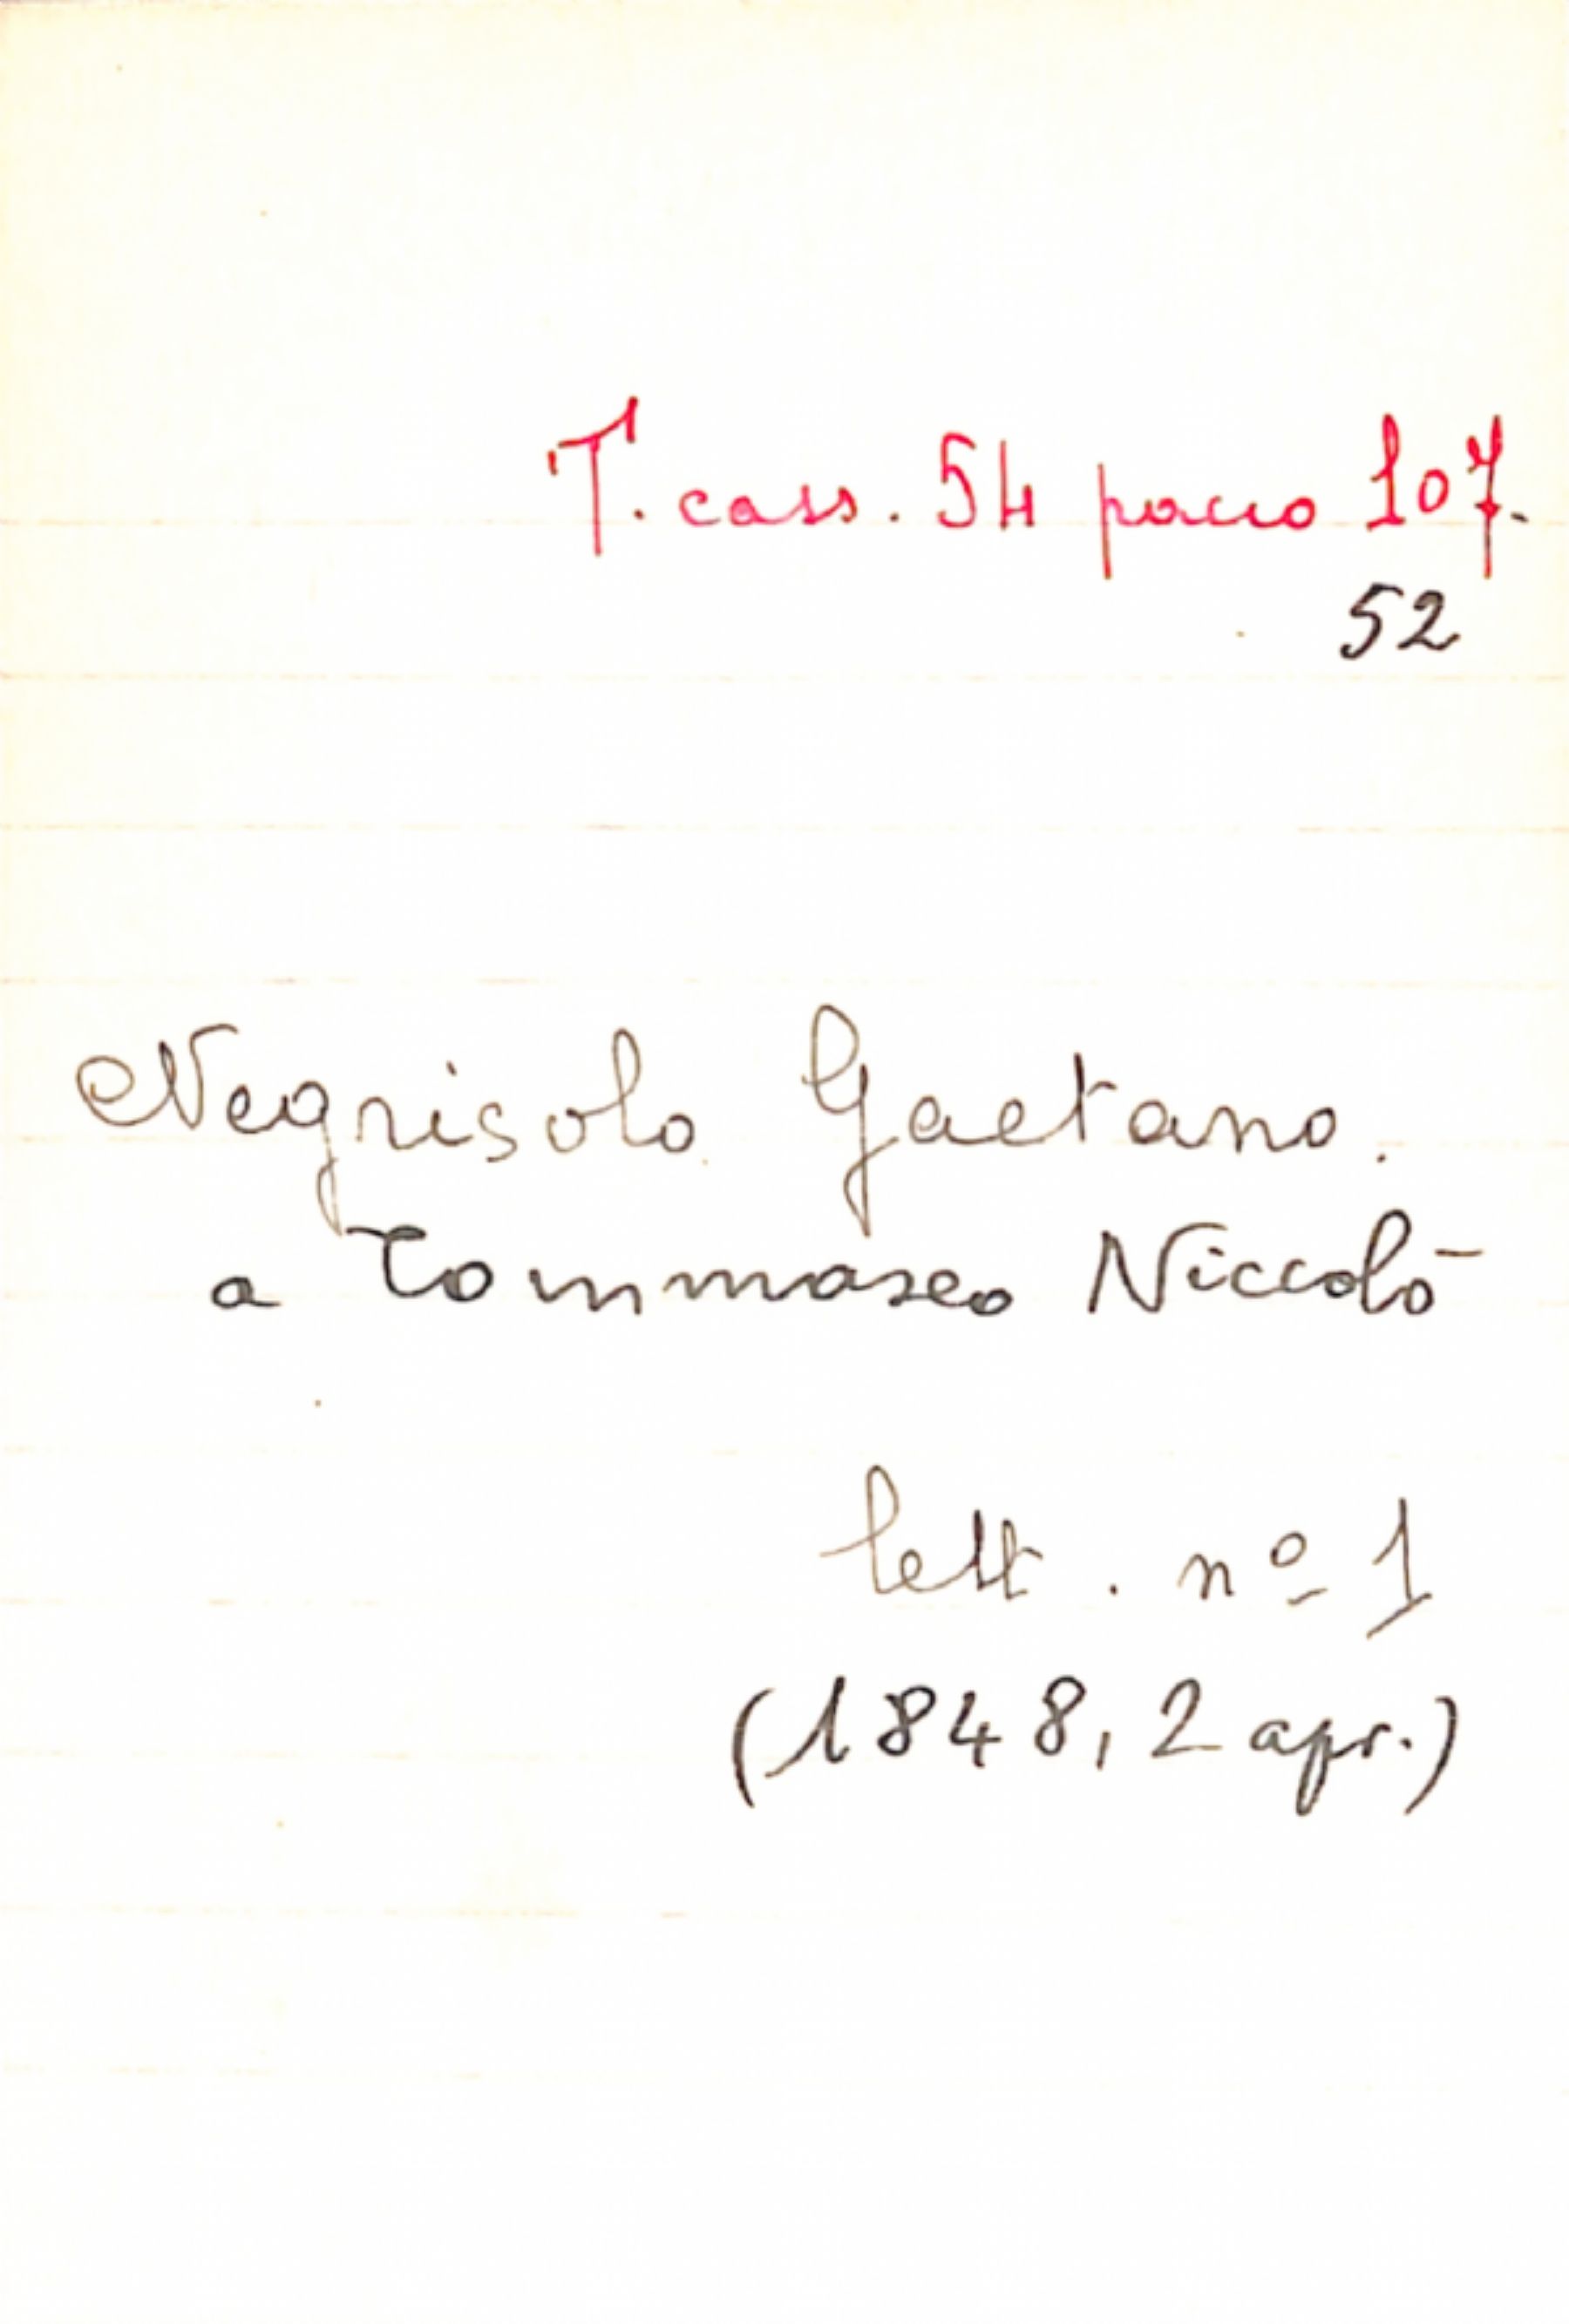 T. cass. 54 pacco 107.
52
Negrisolo Gaetano.
a Tommaseo Niccolò
lett. nº 1
(1848, 2 apr.)